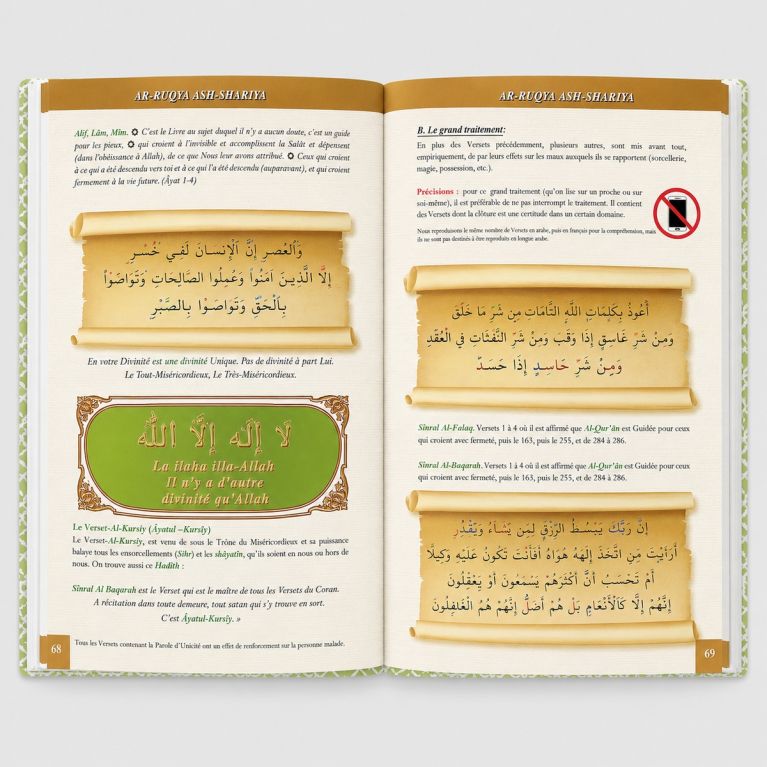 AR-RUQYA ASH-SHARIYA
Alif, Lâm, Mîm. ۞ C'est le Livre au sujet duquel il n'y a aucun doute, c'est un guide
pour les pieux, ۞ qui croient à l'invisible et accomplissent la Salât et dépensent
(dans l'obéissance à Allah), de ce que Nous leur avons attribué. ۞ Ceux qui croient
à ce qui a été descendu vers toi et à ce qui l'a été descendu (auparavant), et qui croient
fermement à la vie future. (Âyat 1-4)
وَالْعُصرِ إِنَّ الْإِنسَانَ لَفِي خُسْرٍ
إِلَّا الَّذِينَ آمَنُوا وَعُمِلُوا الصَّالِحَاتِ وَتَوَاصَوْا
بِالْحَقِّ وَتَوَاصَوْا بِالصَّبْرِ
En votre Divinité est une divinité Unique. Pas de divinité à part Lui.
Le Tout-Miséricordieux, Le Très-Miséricordieux.
لَا إِلَه إِلَّا اللّٰه
La ilaha illa-Allah
Il n'y a d'autre
divinité qu'Allah
Le Verset-Al-Kursiy (Âyatul –Kursîy)
Le Verset-Al-Kursîy, est venu de sous le Trône du Miséricordieux et sa puissance
balaye tous les ensorcellements (Sihr) et les shâyatîn, qu'ils soient en nous ou hors de
nous. On trouve aussi ce Hadîth :
Sînral Al Baqarah est le Verset qui est le maître de tous les Versets du Coran.
A récitation dans toute demeure, tout satan qui s'y trouve en sort.
C'est Âyatul-Kursîy. »
68
Tous les Versets contenant la Parole d'Unicité ont un effet de renforcement sur la personne malade.
AR-RUQYA ASH-SHARIYA
B. Le grand traitement:
En plus des Versets précédemment, plusieurs autres, sont mis avant tout,
empiriquement, de par leurs effets sur les maux auxquels ils se rapportent (sorcellerie,
magie, possession, etc.).
Précisions : pour ce grand traitement (qu'on lise sur un proche ou sur
soi-même), il est préférable de ne pas interrompt le traitement. Il contient
des Versets dont la clôture est une certitude dans un certain domaine.
Nous reproduisons le même nombre de Versets en arabe, puis en français pour la compréhension, mais
ils ne sont pas destinés à être reproduits en longue arabe.
أَعُوذُ بِكَلِمَاتِ اللَّهِ التَّامَاتِ مِن شَرِّ مَا خَلَقَ
وَمِنْ شَرِّ غَاسِقٍ إِذَا وَقَبَ وَمِنْ شَرِّ النَّفَّثَاتِ فِي الْعُقَدِ
وَمِنْ شَرِّ حَاسِدٍ إِذَا حَسَدَ
Sînral Al-Falaq. Versets 1 à 4 où il est affirmé que Al-Qur'ân est Guidée pour ceux
qui croient avec fermeté, puis le 163, puis le 255, et de 284 à 286.
Sînral Al-Baqarah. Versets 1 à 4 où il est affirmé que Al-Qur'ân est Guidée pour ceux
qui croient avec fermeté, puis le 163, puis le 255, et de 284 à 286.
إِنَّ رَبَّكَ يَبْسُطُ الرِّزْقَ لِمَن يَشَاءُ وَيَقْدِرُ
أَرَأَيْتَ مَنِ اتَّخَذَ إِلَهَهُ هَوَاهُ أَفَأَنْتَ تَكُونُ عَلَيْهِ وَكِيلًا
أَمْ تَحْسَبُ أَنَّ أَكْثَرَهُمْ يَسْمَعُونَ أَوْ يَعْقِلُونَ
إِنَّهُمْ إِلَّا كَالْأَنْعَامِ بَلْ هُمْ أَضَلُّ إِنَّهُمْ هُمُ الْغَافِلُونَ
69